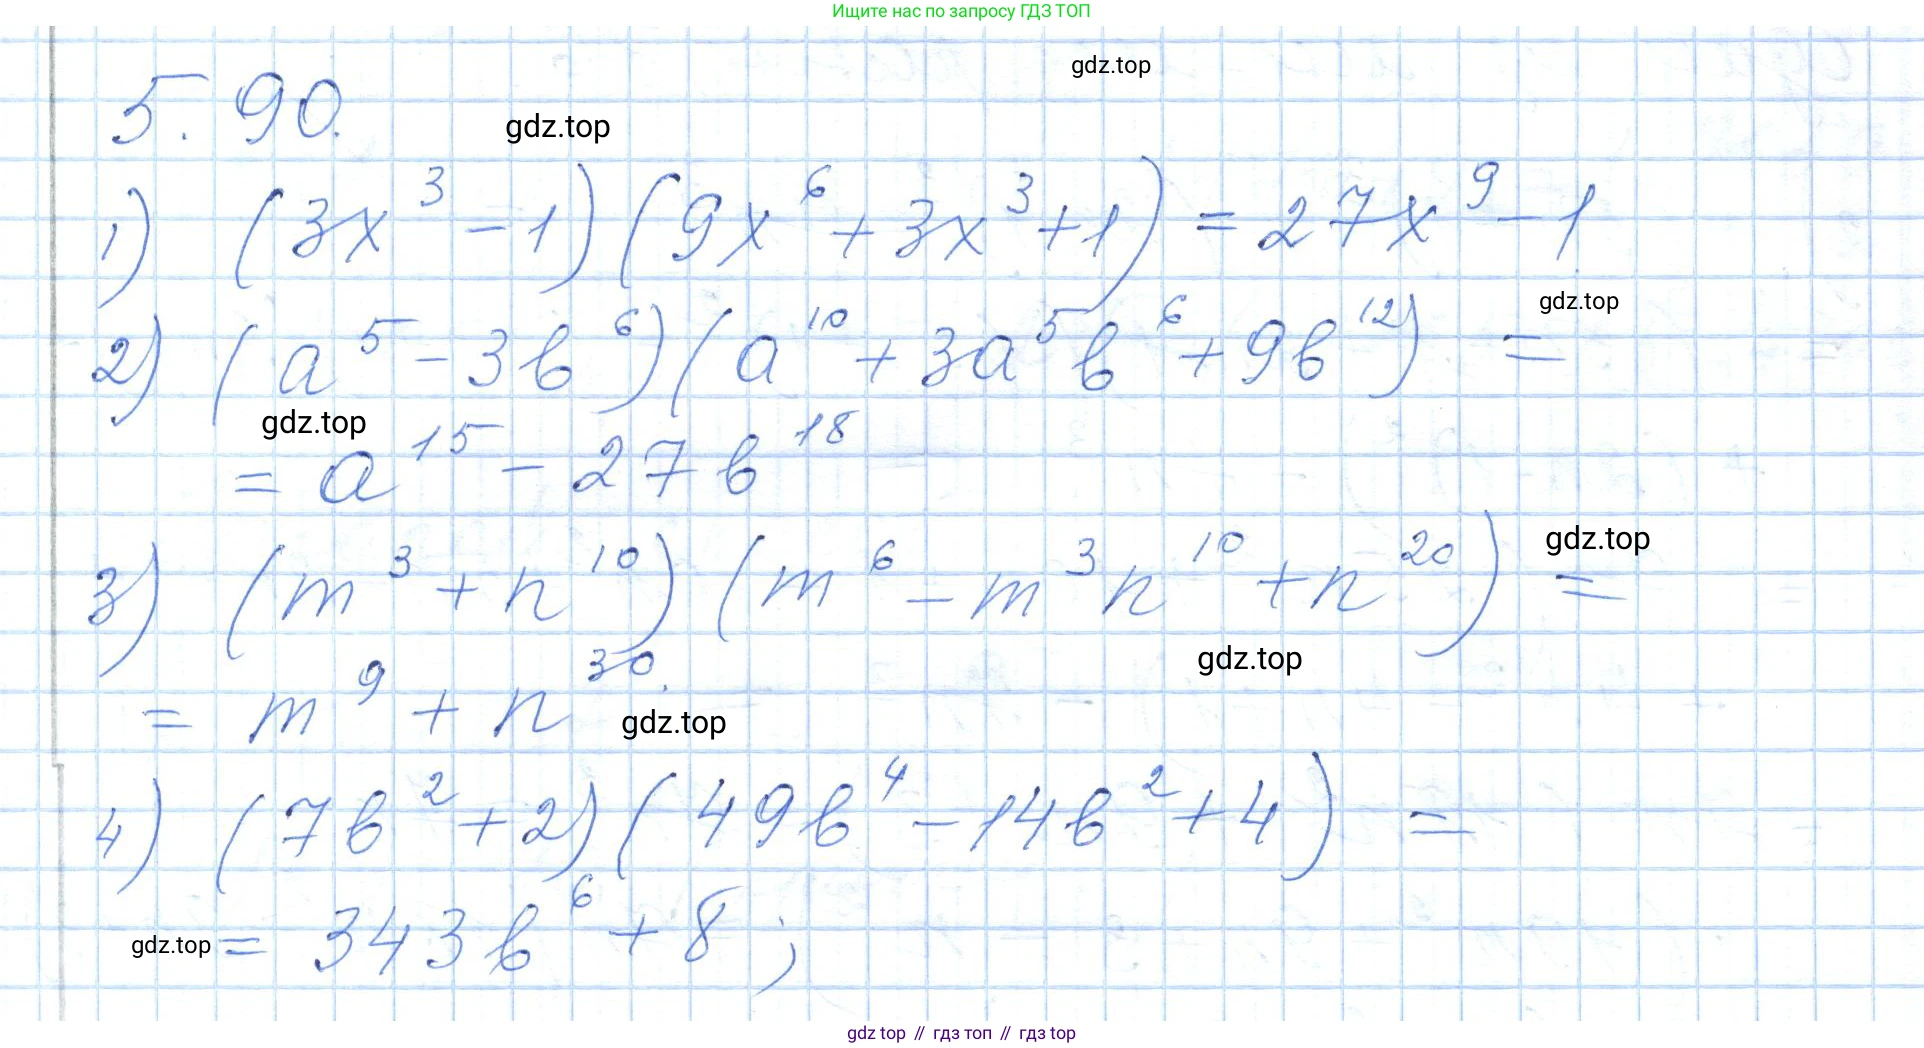 Ищите нас по запросу ГДЗ ТОП
gdz.top
5.90.
gdz.top
1) (3x³ - 1)(9x⁶ + 3x³ + 1) = 27x⁹ - 1
gdz.top
2) (a⁵ - 3b⁶)(a¹⁰ + 3a⁵b⁶ + 9b¹²) =
gdz.top
= a¹⁵ - 27b¹⁸
gdz.top
3) (m³ + n¹⁰)(m⁶ - m³n¹⁰ + n²⁰) =
gdz.top
= m⁹ + n³⁰.
gdz.top
4) (7b² + 2)(49b⁴ - 14b² + 4) =
gdz.top
= 343b⁶ + 8;
gdz top // гдз топ // гдз top